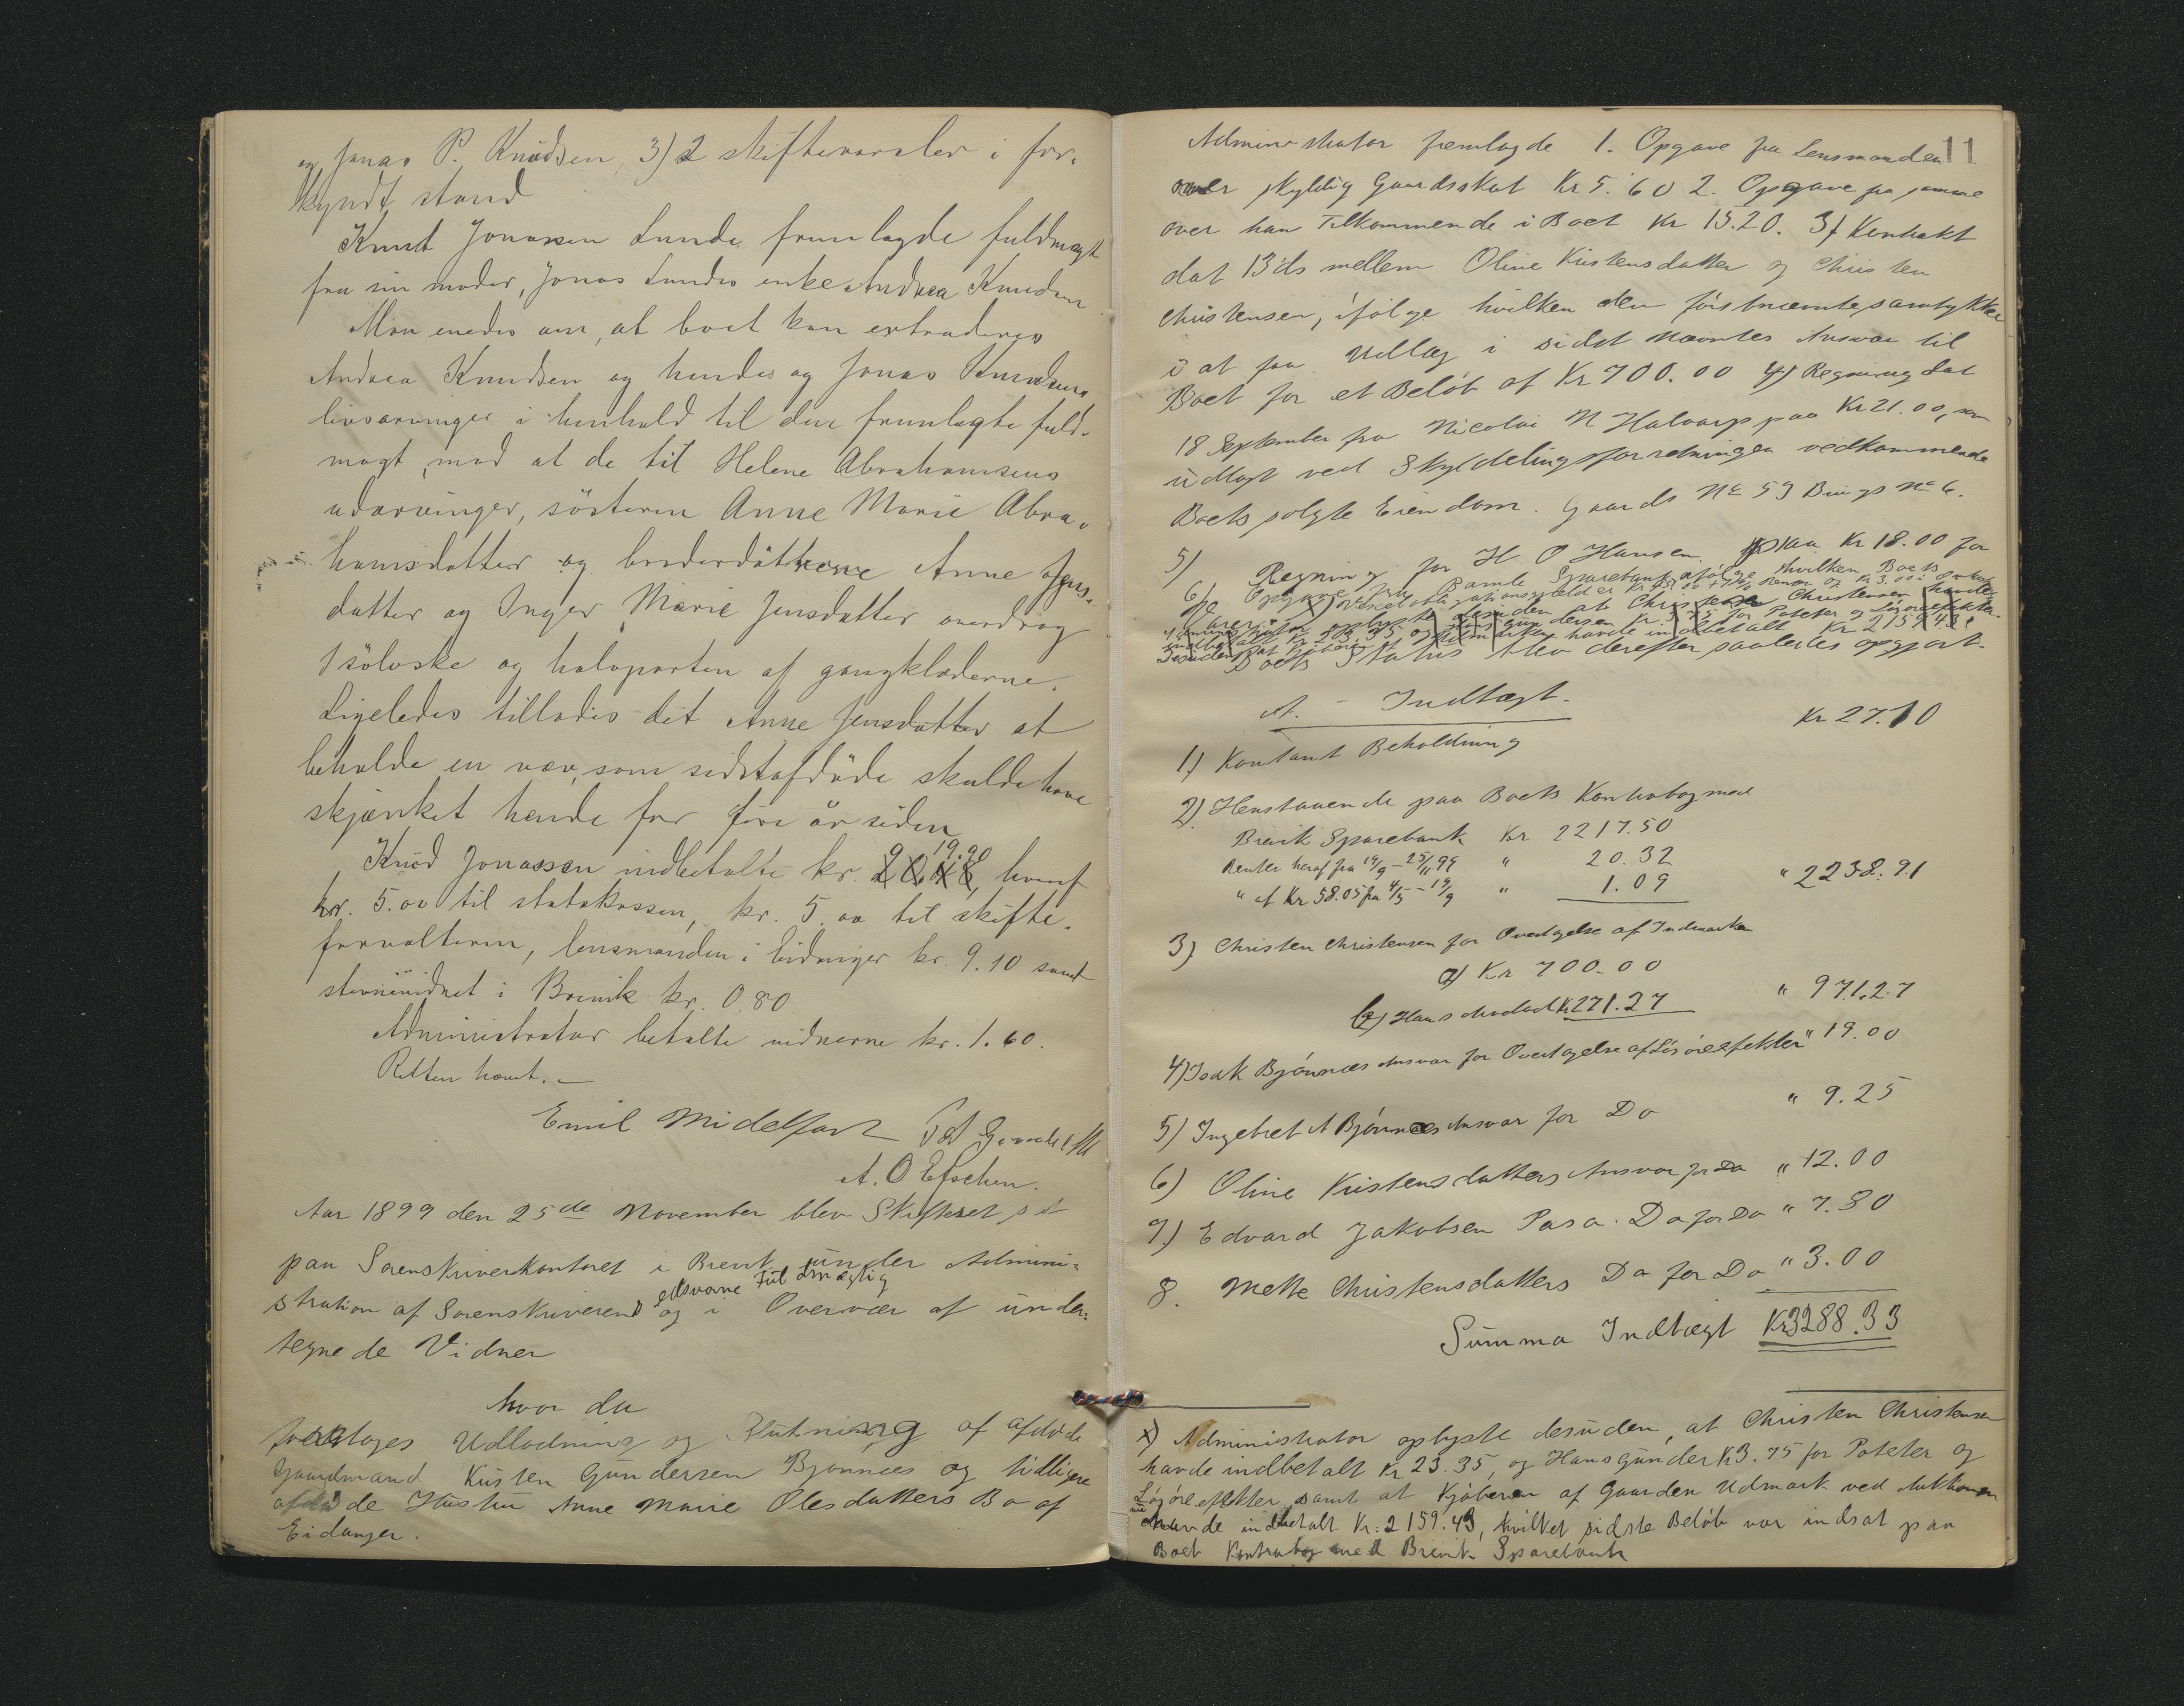 og Jonas P. Knudsen, 3) 2 skiftevarsler i for-
kyndt stand
Knut Jonassen Lunde fremlagde fuldmagt
fra sin moder, Jonas Lundes enke Andrea Knudsen
Man enedes om, at boet kan extraderes
Andrea Knudsen og hendes og Jonas Knudsens
livsarvinger i henhold til den fremlagte fuld-
magt, mod at de til Helene Abrahamsens
udarvinger, søsteren Anne Marie Abra-
hamsdatter og broderdøtrene Anne Jens-
datter og Inger Marie Jensdatter overdrog
1 sølvske og halvparten af gangklæderne.
Ligeledes tillodes det Anne Jensdatter at
beholde en væv, som sidstafdøde skulde have
skjænket hende for fire år siden
Knud Jonassen indbetalte kr. 19.90, hvoraf
kr. 5.00 til statskassen, kr. 5.00 til skifte-
forvalteren, lensmanden i Eidanger kr. 9.10 samt
stevnevidnet i Brevik kr. 0.80
Administrator betalte vidnerne kr. 1.60.
Retten hævet.
Emil Midelfart
A. O Efschen.
Aar 1899 den 25de November blev Skifteret sat
paa Sorenskriverkontoret i Brevik under Admini-
stration af Sorenskriverens edsvorne Fuldmægtig og i Overvær af under-
tegnede Vidner
hvor da
foretoges Udlodning og Slutning af afdøde
Gaardmand Kristen Gundersen Bjønnes og tidligere
afdøde Hustru Anne Marie Olesdatters Bo af
Eidanger.
11
Administrator fremlagde 1. Opgave fra Lensmanden
over skyldig Gaardsskat Kr 5.60 2. Opgave fra samme
over ham Tilkommende i Boet Kr 15.20. 3) Kontrakt
dat 13 ds mellem Oline Kristensdatter og Christen
Christensen, ifølge hvilken den førstnævnte samtykker
i at faa Udlæg i sidst nævntes Ansvar til
Boet for et Beløb af Kr 700.00 4) Regning dat
18 September fra Nicolai N Halvarp paa Kr 21.00, som
udlagt ved Skyldelingsforretningen vedkommende
Boets solgte Eiendom. Gaards No 59 Brugs No 6.
5) Regning for H O Hansen paa Kr 18.00 for
6) Opgave fra Bamle Sparebank ifølge hvilken Boets
Boets Status blev derefter saaledes opgjort.
A. - Indtægt.
1) Kontant Beholdning Kr 27.10
2) Henstaaende paa Boets Kontrabog med
Brevik Sparebank Kr 2217.50
Renter heraf fra 19/9 - 25/11 99 " 20.32
" af Kr 58.05 fra 4/5 - 19/9 " 1.09 " 2238.91
3) Christen Christensen for Overtagelse af Indmarken
a) Kr 700.00
b) Hans Arvelod Kr 271.27 " 971.27
4) Isak Bjønnæs Ansvar for Overtagelse af Løsøreefekter " 19.00
5) Ingebret A Bjønnæs Ansvar for Do " 9.25
6) Oline Kristensdatters Ansvar for Do " 12.00
7.) Edvard Jakobsen Pasa. Do for Do " 7.80
8. Mette Christensdatters Do for Do " 3.00
Summa Indtægt Kr 3288.33
x) Administrator oplyste desuden, at Christen Christensen
havde indbetalt Kr 23.35, og Hans Gunder Kr 3.75 for Poteter og
Løsøreefekter samt at Kjøberen af Gaarden Udmark ved Auktionen
havde indbetalt Kr: 2159.43, hvilket sidste Beløb var indsat paa
Boet Kontrabog med Brevik Sparebank